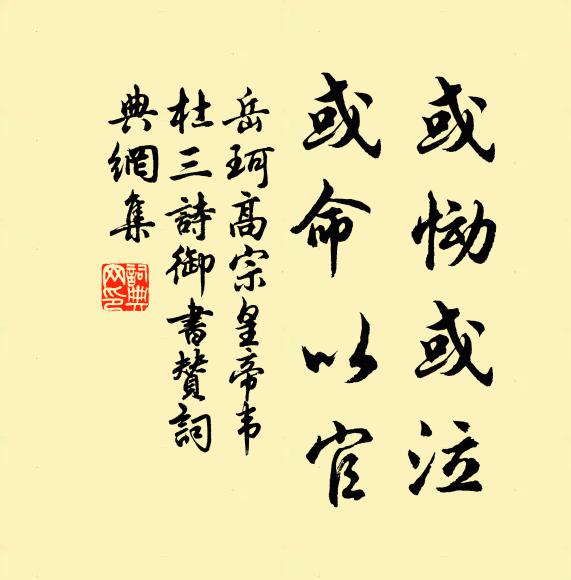 或恸或泣
或命以官
岳珂高宗皇帝韦
杜三詩御書贊詞
典網集
詞典網印